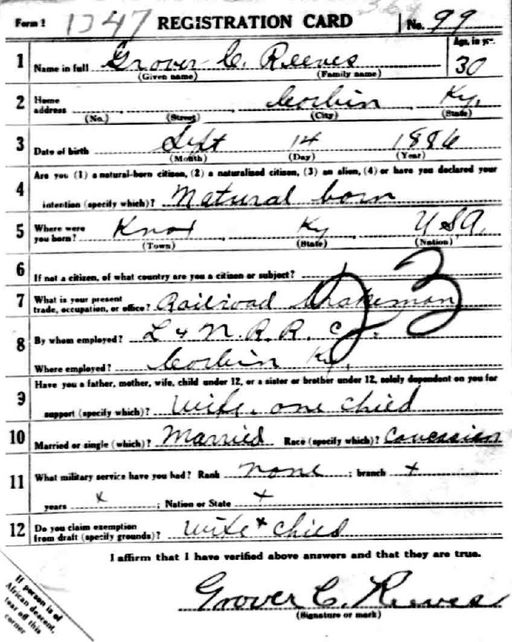 Form 1 1347 REGISTRATION CARD No. 99
1 Name in full Grover C. Reeves Age, in yrs. 30
(Given name) (Family name)
2 Home address Corbin Ky.
(No.) (Street) (City) (State)
3 Date of birth Sept 14 1886
(Month) (Day) (Year)
4 Are you (1) a natural-born citizen, (2) a naturalized citizen, (3) an alien, (4) or have you declared your
intention (specify which)? Natural born
5 Where were you born? Knox Ky USA.
(Town) (State) (Nation)
6 If not a citizen, of what country are you a citizen or subject?
7 What is your present trade, occupation, or office? Railroad Brakeman
23
8 By whom employed? L & N. R. R. C.
Where employed? Corbin Ky.
9 Have you a father, mother, wife, child under 12, or a sister or brother under 12, solely dependent on you for
support (specify which)? Wife. one child
10 Married or single (which)? Married Race (specify which)? Caucasian
11 What military service have you had? Rank none ; branch +
years x ; Nation or State +
12 Do you claim exemption from draft (specify grounds)? Wife + child
I affirm that I have verified above answers and that they are true.
Grover C. Reeves
(Signature or mark)
If person is of
African descent,
tear off this
corner